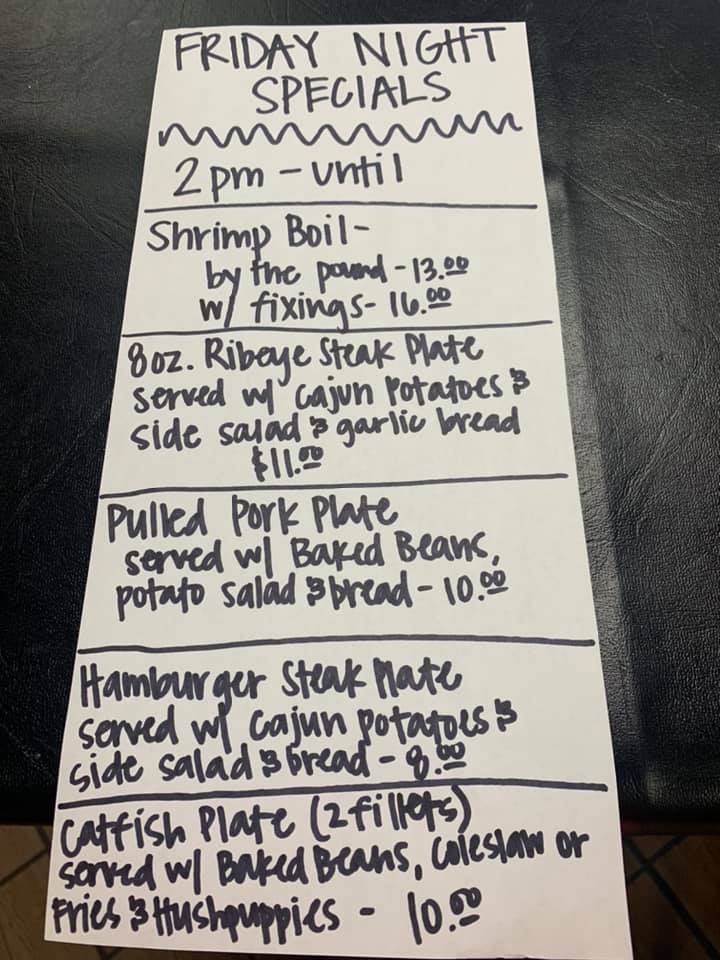 FRIDAY NIGHT
SPECIALS
2pm - until
Shrimp Boil-
by the pound - 13.00
w/ fixings- 16.00
8oz. Ribeye Steak Plate
served w/ Cajun Potatoes &
side salad & garlic bread
$11.00
Pulled Pork Plate
served w/ Baked Beans,
potato salad & bread - 10.00
Hamburger Steak Plate
served w/ Cajun potatoes &
side salad & bread - 8.00
Catfish Plate (2 fillets)
served w/ Baked Beans, Coleslaw or
Fries & Hushpuppies - 10.00